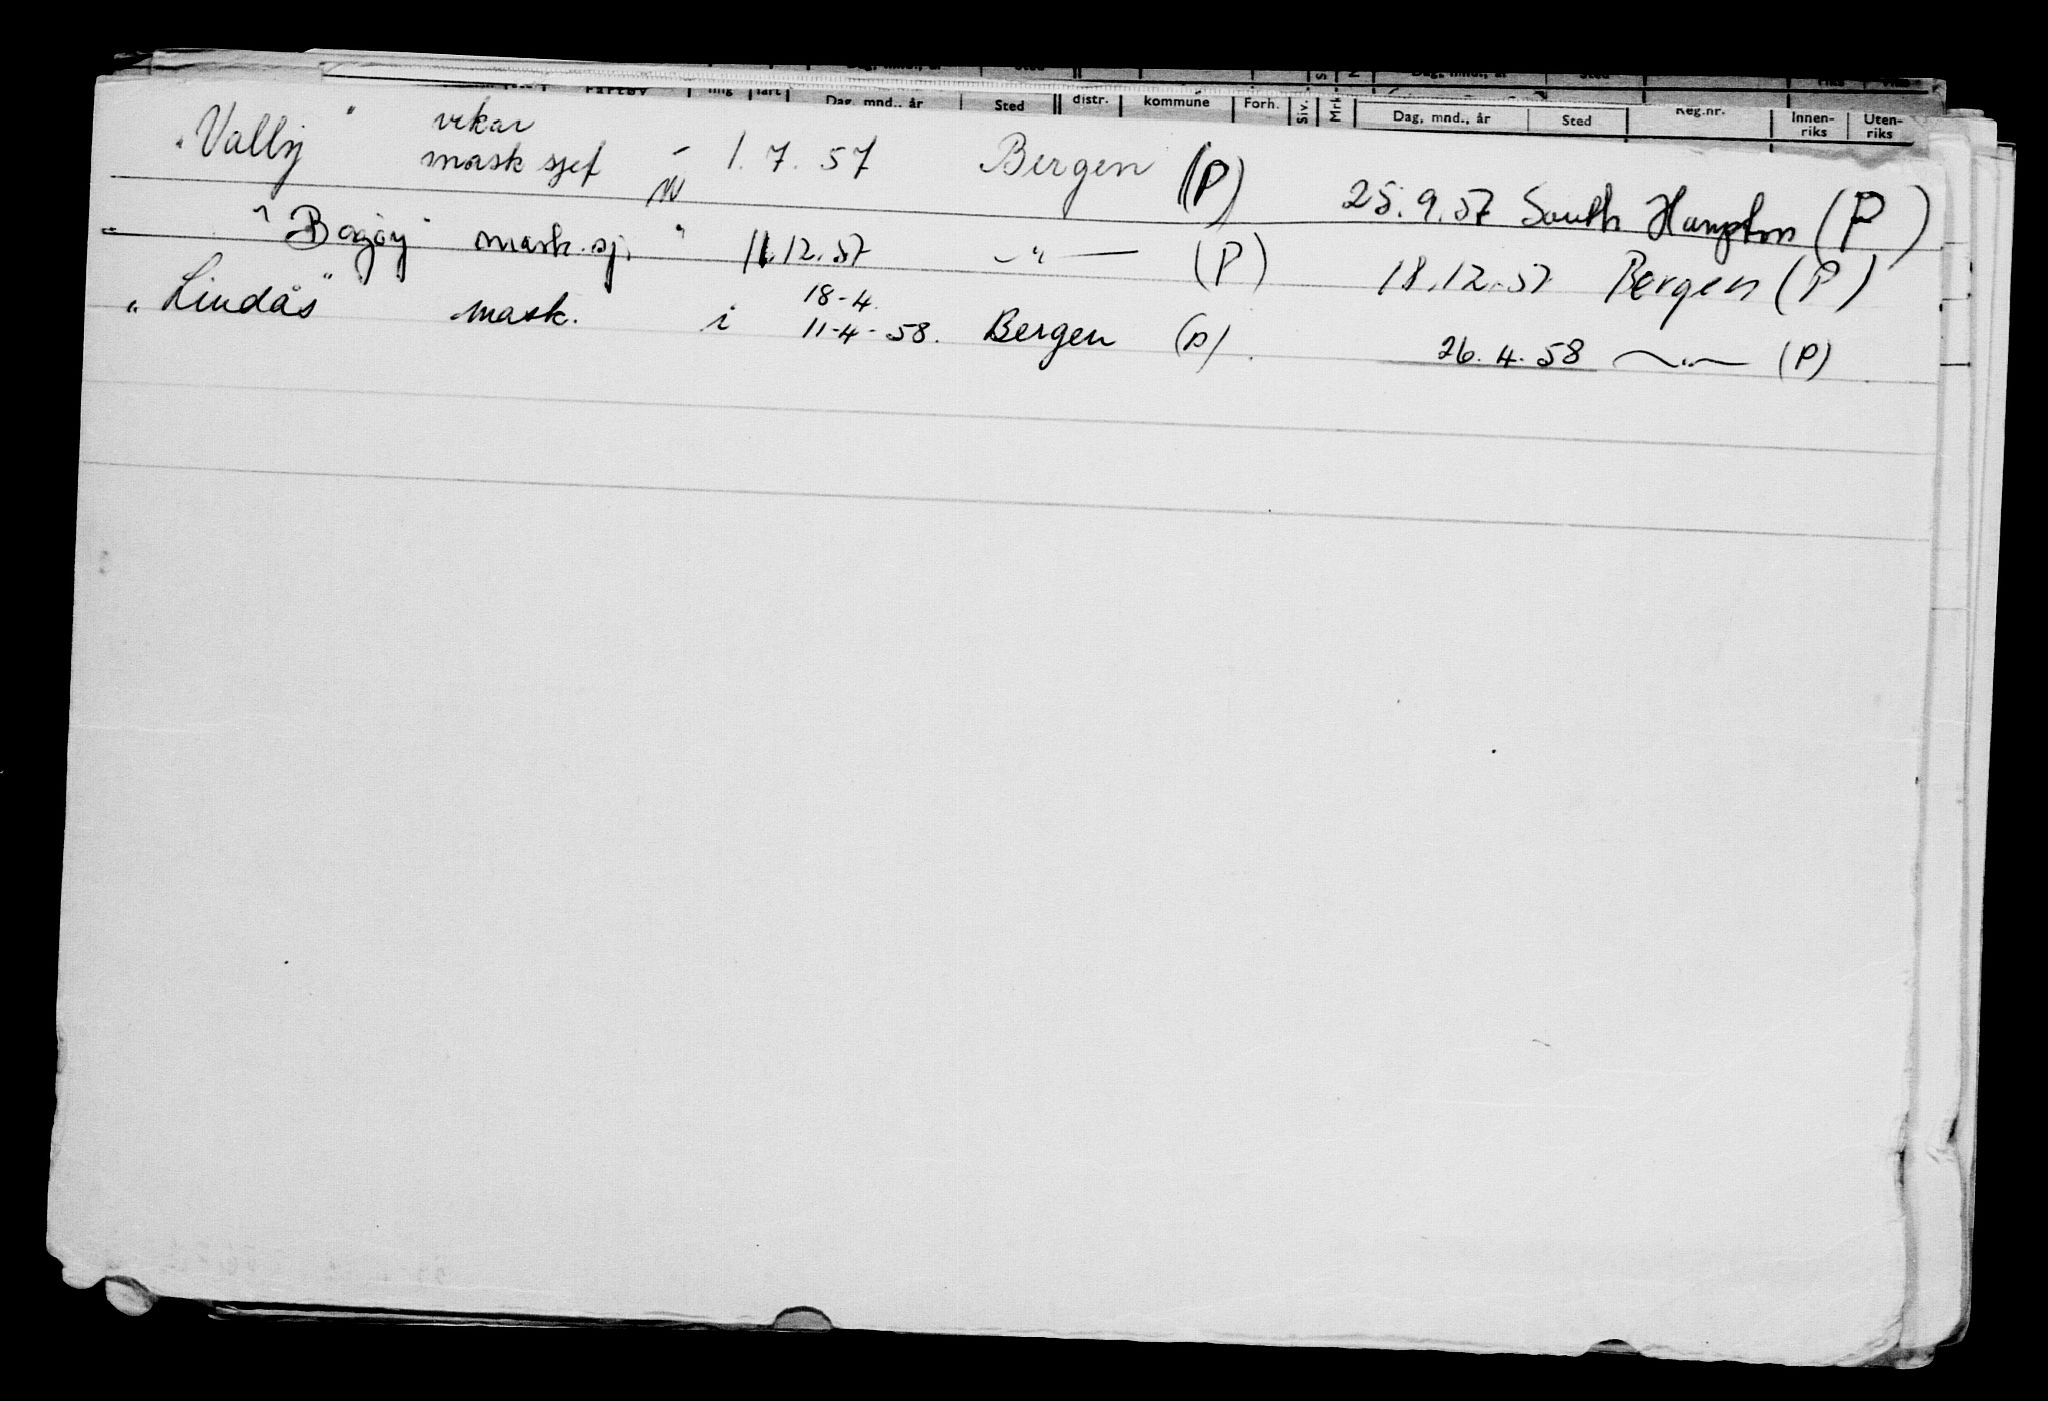 Dag, mnd., år Sted
Fartøy Dag, mnd., år Sted distr. kommune Forh. Siv. Mrk Dag, mnd., år Sted Reg.nr. Innen-riks Uten-riks
vikar
"Vallvj" mask sjef - 1. 7. 57 Bergen (P) 25.9.57 South Hampton (P)
"Bogøy" mask.sj. " 11.12.57 -"- (P) 18.12.57 Bergen (P)
18-4.
"Lindås" mask. i 11-4-58. Bergen (P) 26.4.58 -"- (P)